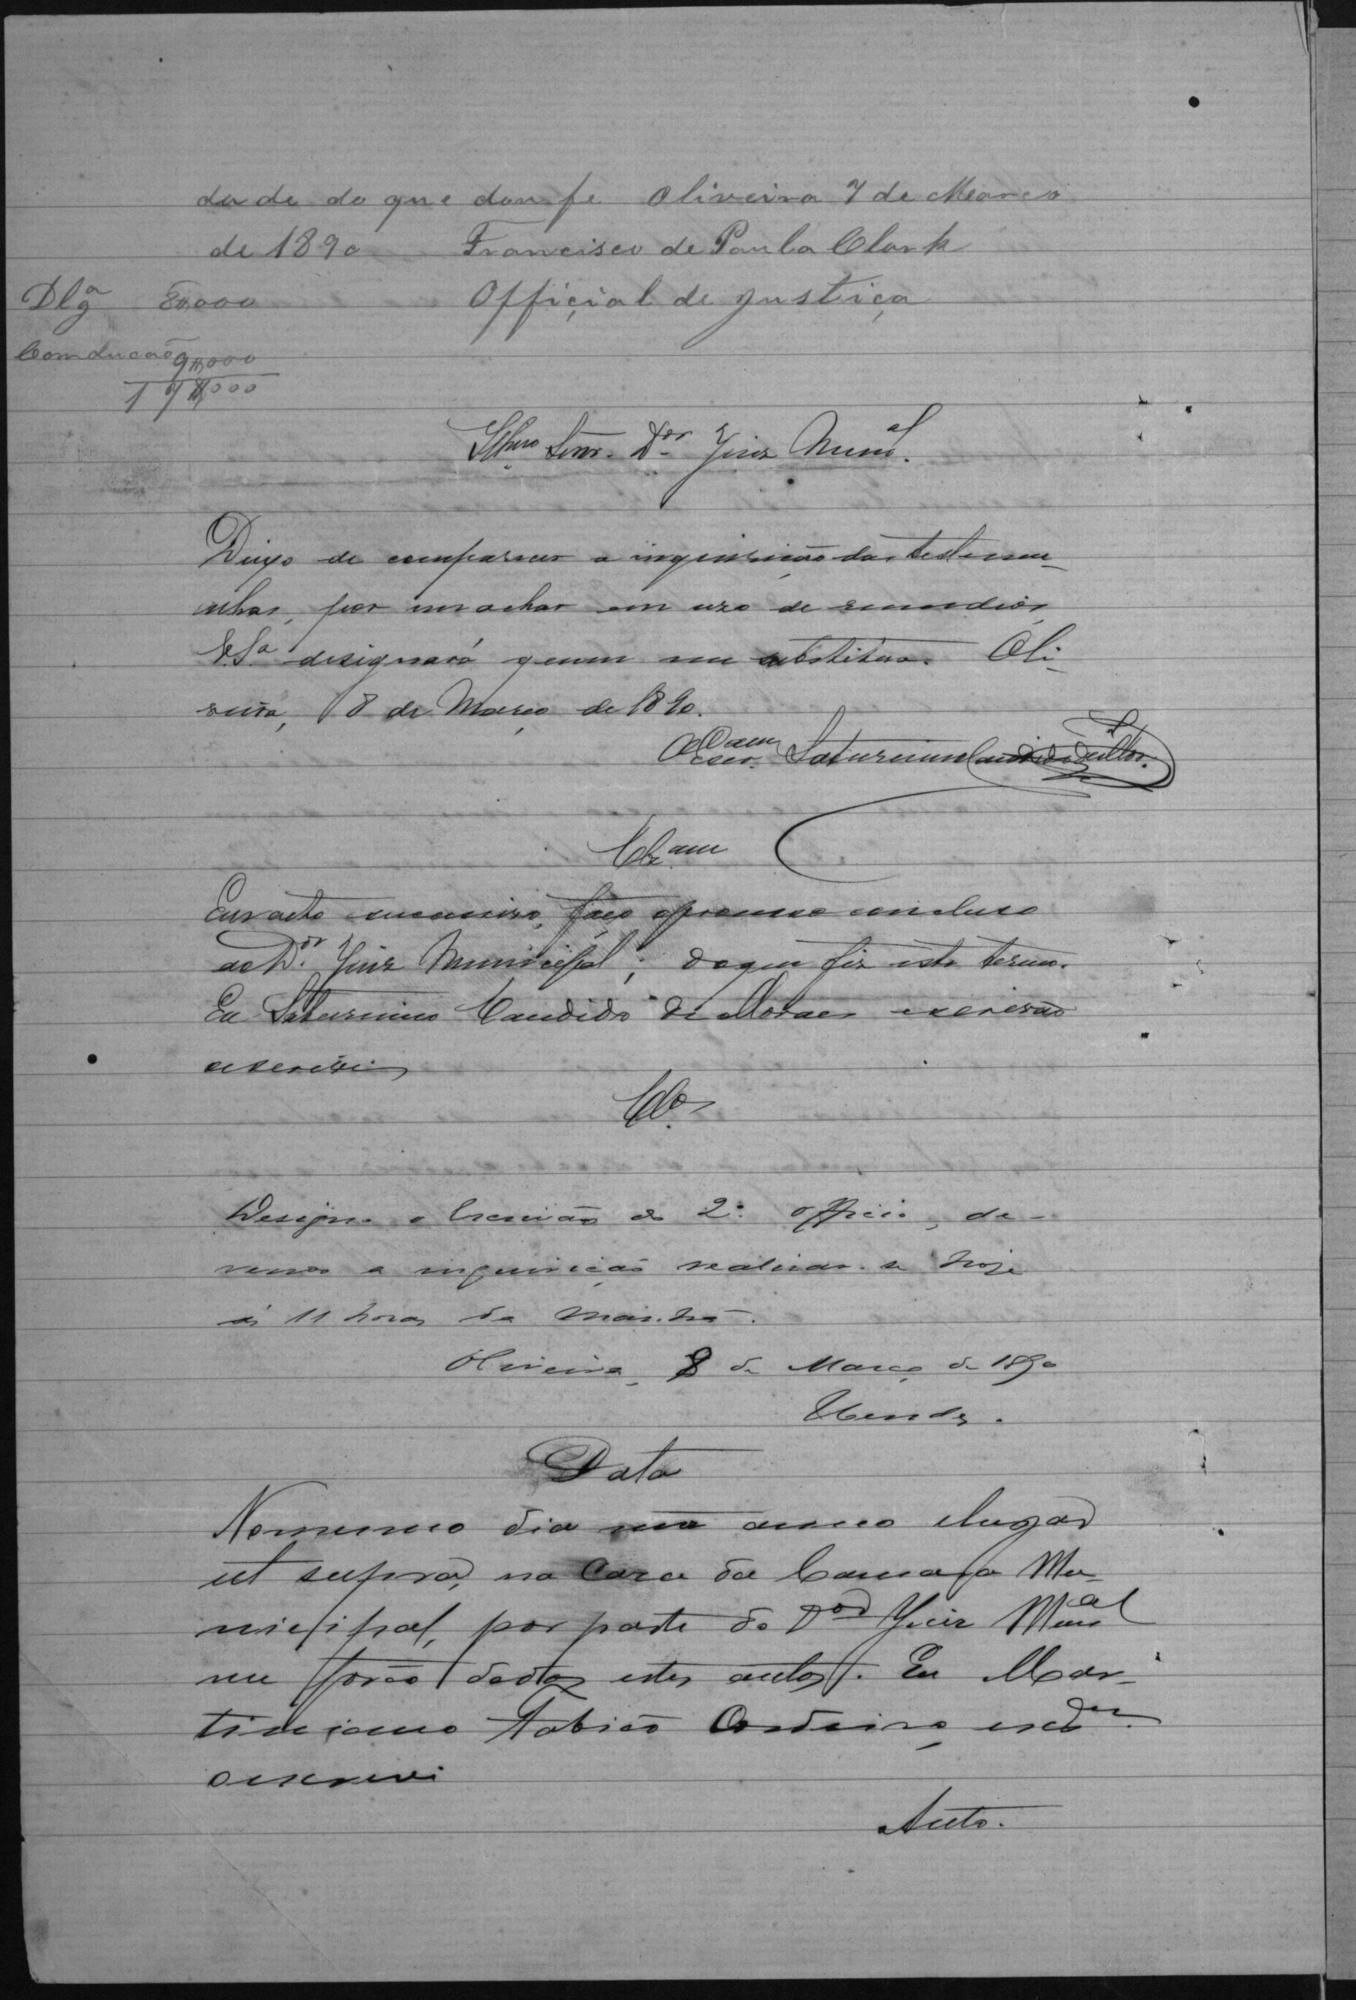 dade do que dou fe Oliveira 7 de Março
de 1890 Francisco de Paula Clark
Dlgª 8$000 Officiçial de justiça
Comducão 9$000
17$000
Illmo Senr. Dor Juiz Munal.
Deixo de comparecer a inquirição das testemu-
nhas, por me achar em uso de remedios,
V.Sª designará quem me substitua. Oli-
veira, 8 de Março de 1890.
O Escram Saturnino Candido
Clzam
Em acto successivo, faço o processo concluso
ao Dor Juiz Municipal; do que fiz este termo.
Eu Saturnino Candido de Moraes escrivão
o escrevi
Clos
Designo o Escrivão do 2º officio, de-
vendo a inquirição realisar-se hoje
ás 11 horas da manhã.
Oliveira, 8 de Março de 1890
Mendes.
Data
No mesmo dia mez anno e lugar
ut supra, na Casa da Camara Mu-
nicipal, por parte do Dor Juiz Munal
me forão dados estes autos. Eu Mar-
timiano Fabião Cordeiro,
o escrevi
Auto.